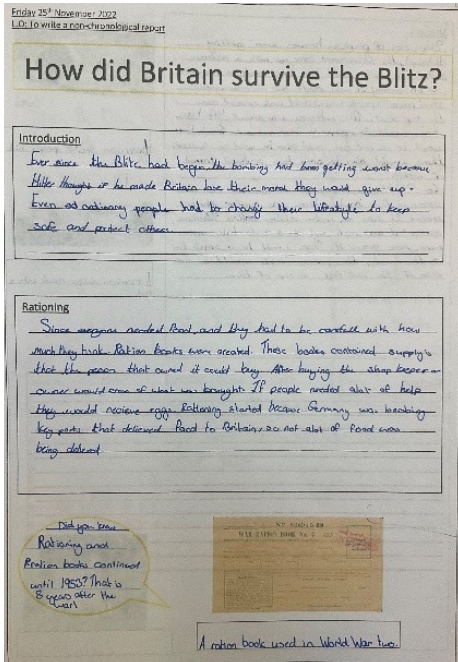 Friday 25th November 2022
L.O: To write a non-chronological report
How did Britain survive the Blitz?
Introduction
Ever since the Blitz had begin, the bombing had been getting worst because
Hitler thought if he made Britain lose their moral they would give up.
Even ordinary people had to change their lifestyle to keep
safe and protect others.
Rationing
Since everyone needed food, and they had to be carefull with how
much they Ration Books were created. These books contained supply's
that the person that owned it could buy. After buying the shop keeper or
owner would cross of what was brought. If people needed alot of help
they would recieve eggs. Rationing started because Germany was bombing
key ports that delivered food to Britain, so not alot of food was
being
Did you know
Rationing and
Ration books continued
until 1953? That is
8 years after the
war!
WAR RATION BOOK No.
A ration book used in World War two.